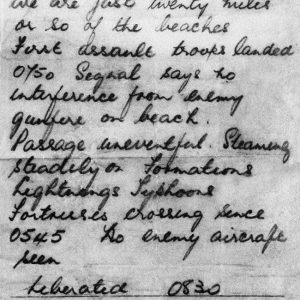 we are just twenty miles
or so of the beaches
First assault troops landed
0750 Segnal says no
interference from enemy
gunfire on beach.
Passage uneventful. Steaming
steadily on Formations
Lightnings Typhoons
Fortresses crossing sence
0545 No enemy aircraft
seen
Liberated 0830